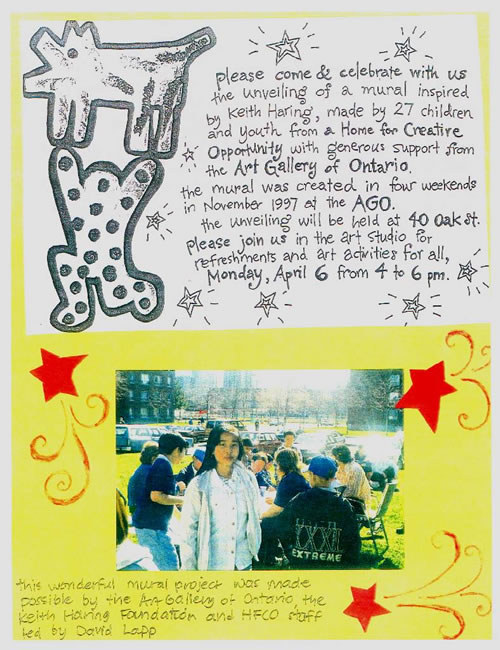 please come & celebrate with us
the unveiling of a mural inspired
by Keith Haring, made by 27 children
and youth from a Home for Creative
Opportunity with generous support from
the Art Gallery of Ontario.
the mural was created in four weekends
in November 1997 at the AGO.
the unveiling will be held at 40 Oak st.
please join us in the art studio for
refreshments and art activities for all,
Monday, April 6 from 4 to 6 pm.
EXTREME
this wonderful mural project was made
possible by the Art Gallery of Ontario, the
Keith Haring Foundation and HFCO staff
led by David Lapp